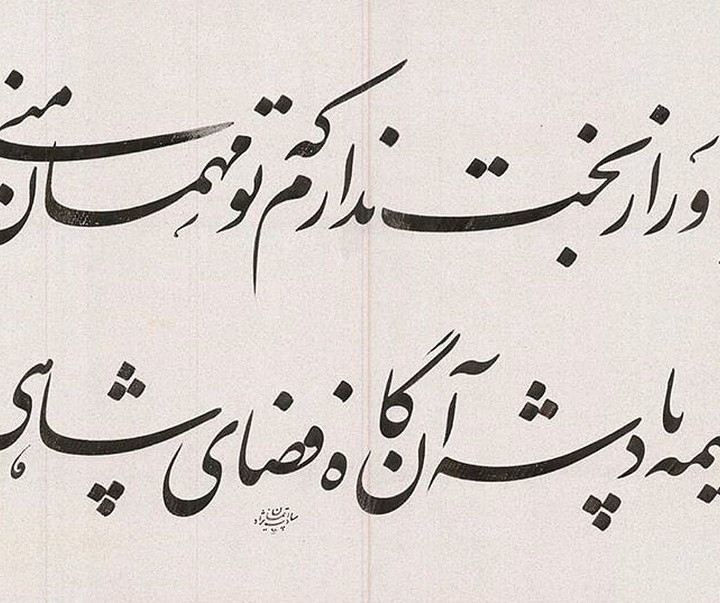 ور از بخت ندارم که تو مهمان منی
یمه پادشه آن گاه فضای